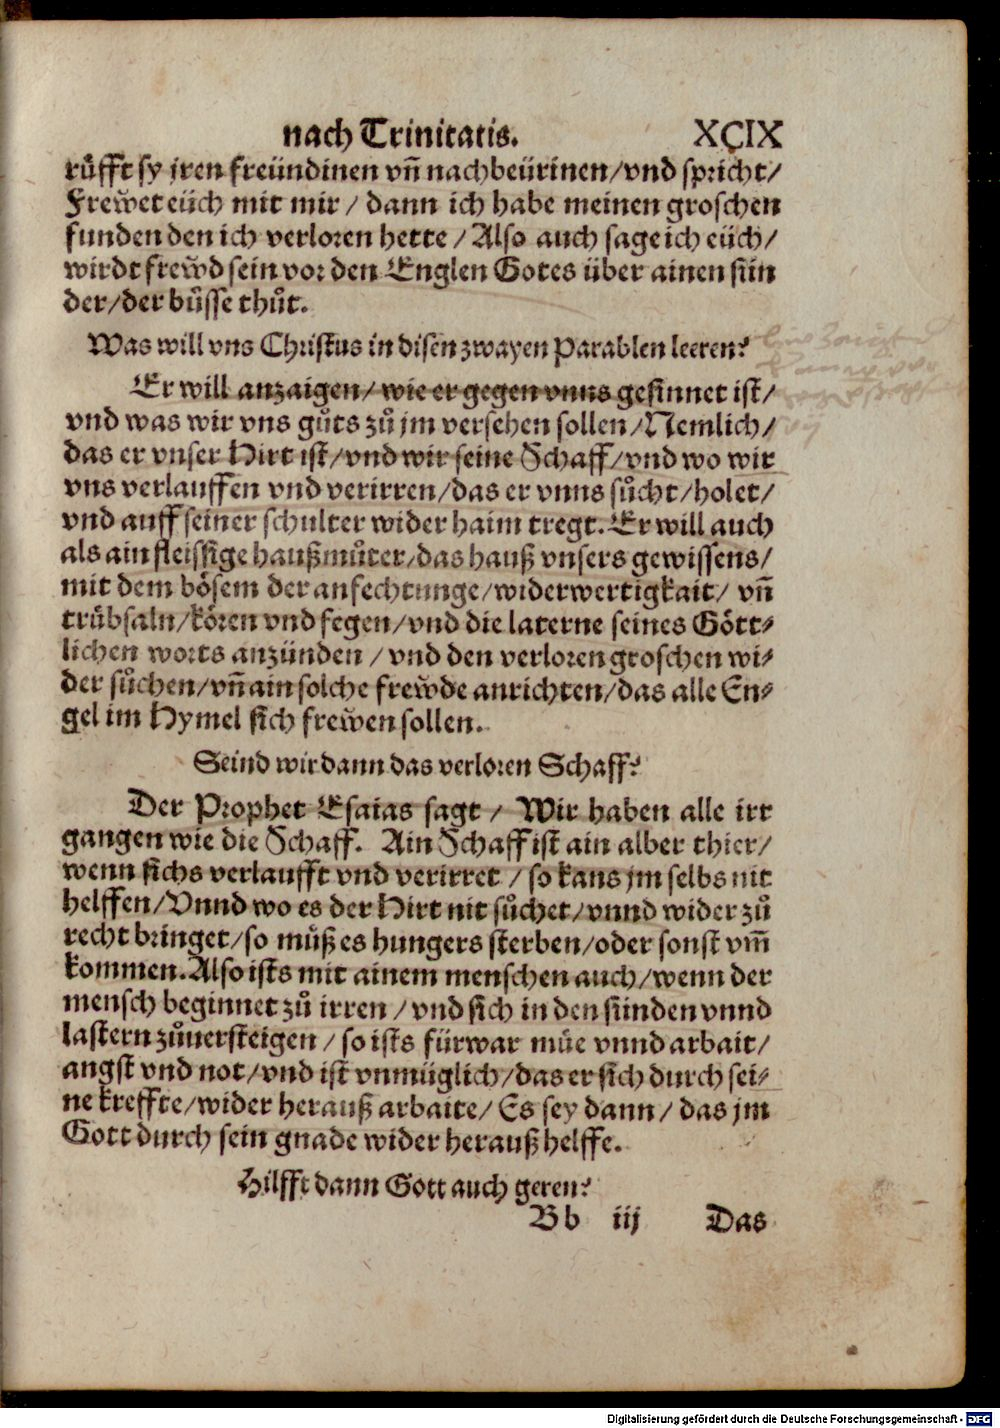 nach Trinitatis. XCIX
rüfft sy jren freündinen vñ nachbeürinen/vnd spricht/
Frewͤet eüch mit mir / dann ich habe meinen groschen
funden den ich verloren hette / Also auch sage ich eüch/
wirdt frewͤd sein vor den Englen Gotes über ainen sün
der/der bůsse thůt.
Was will vns Christus in disen zwayen Parablen leeren?
Er will anzaigen/ wie er gegen vnns gesinnet ist/
vnd was wir vns gůts zů jm versehen sollen/Nemlich/
das er vnser Hirt ist/vnd wir seine Schaff/vnd wo wir
vns verlauffen vnd verirren/das er vnns sůcht/holet/
vnd auff seiner schulter wider haim tregt. Er will auch
als ain fleissige haußmůter/das hauß vnsers gewissens/
mit dem bösem der anfechtunge/widerwertigkait/ vñ
trübsaln/kören vnd fegen/vnd die laterne seines Gött⸗
lichen worts anzünden / vnd den verloren groschen wi⸗
der sůchen/vñ ain solche frewͤde anrichten/das alle En⸗
gel im Hymel sich frewͤen sollen.
Seind wir dann das verloren Schaff?
Der Prophet Esaias sagt / Wir haben alle irr
gangen wie die Schaff. Ain Schaff ist ain alber thier/
wenn sichs verlaufft vnd verirret / so kans jm selbs nit
helffen/Vnnd wo es der Hirt nit sůchet/vnnd wider zů
recht bringet/so můß es hungers sterben/oder sonst vm̃
kommen. Also ists mit ainem menschen auch/wenn der
mensch beginnet zů irren / vnd sich in den sünden vnnd
lastern zůuersteigen / so ists fürwar müe vnnd arbait/
angst vnd not/vnd ist vnmüglich/das er sich durch sei⸗
ne kreffte/wider herauß arbaite/ Es sey dann/ das jm
Gott durch sein gnade wider herauß helffe.
Hilfft dann Gott auch geren?
Bb iij Das
Digitalisierung gefördert durch die Deutsche Forschungsgemeinschaft - DFG